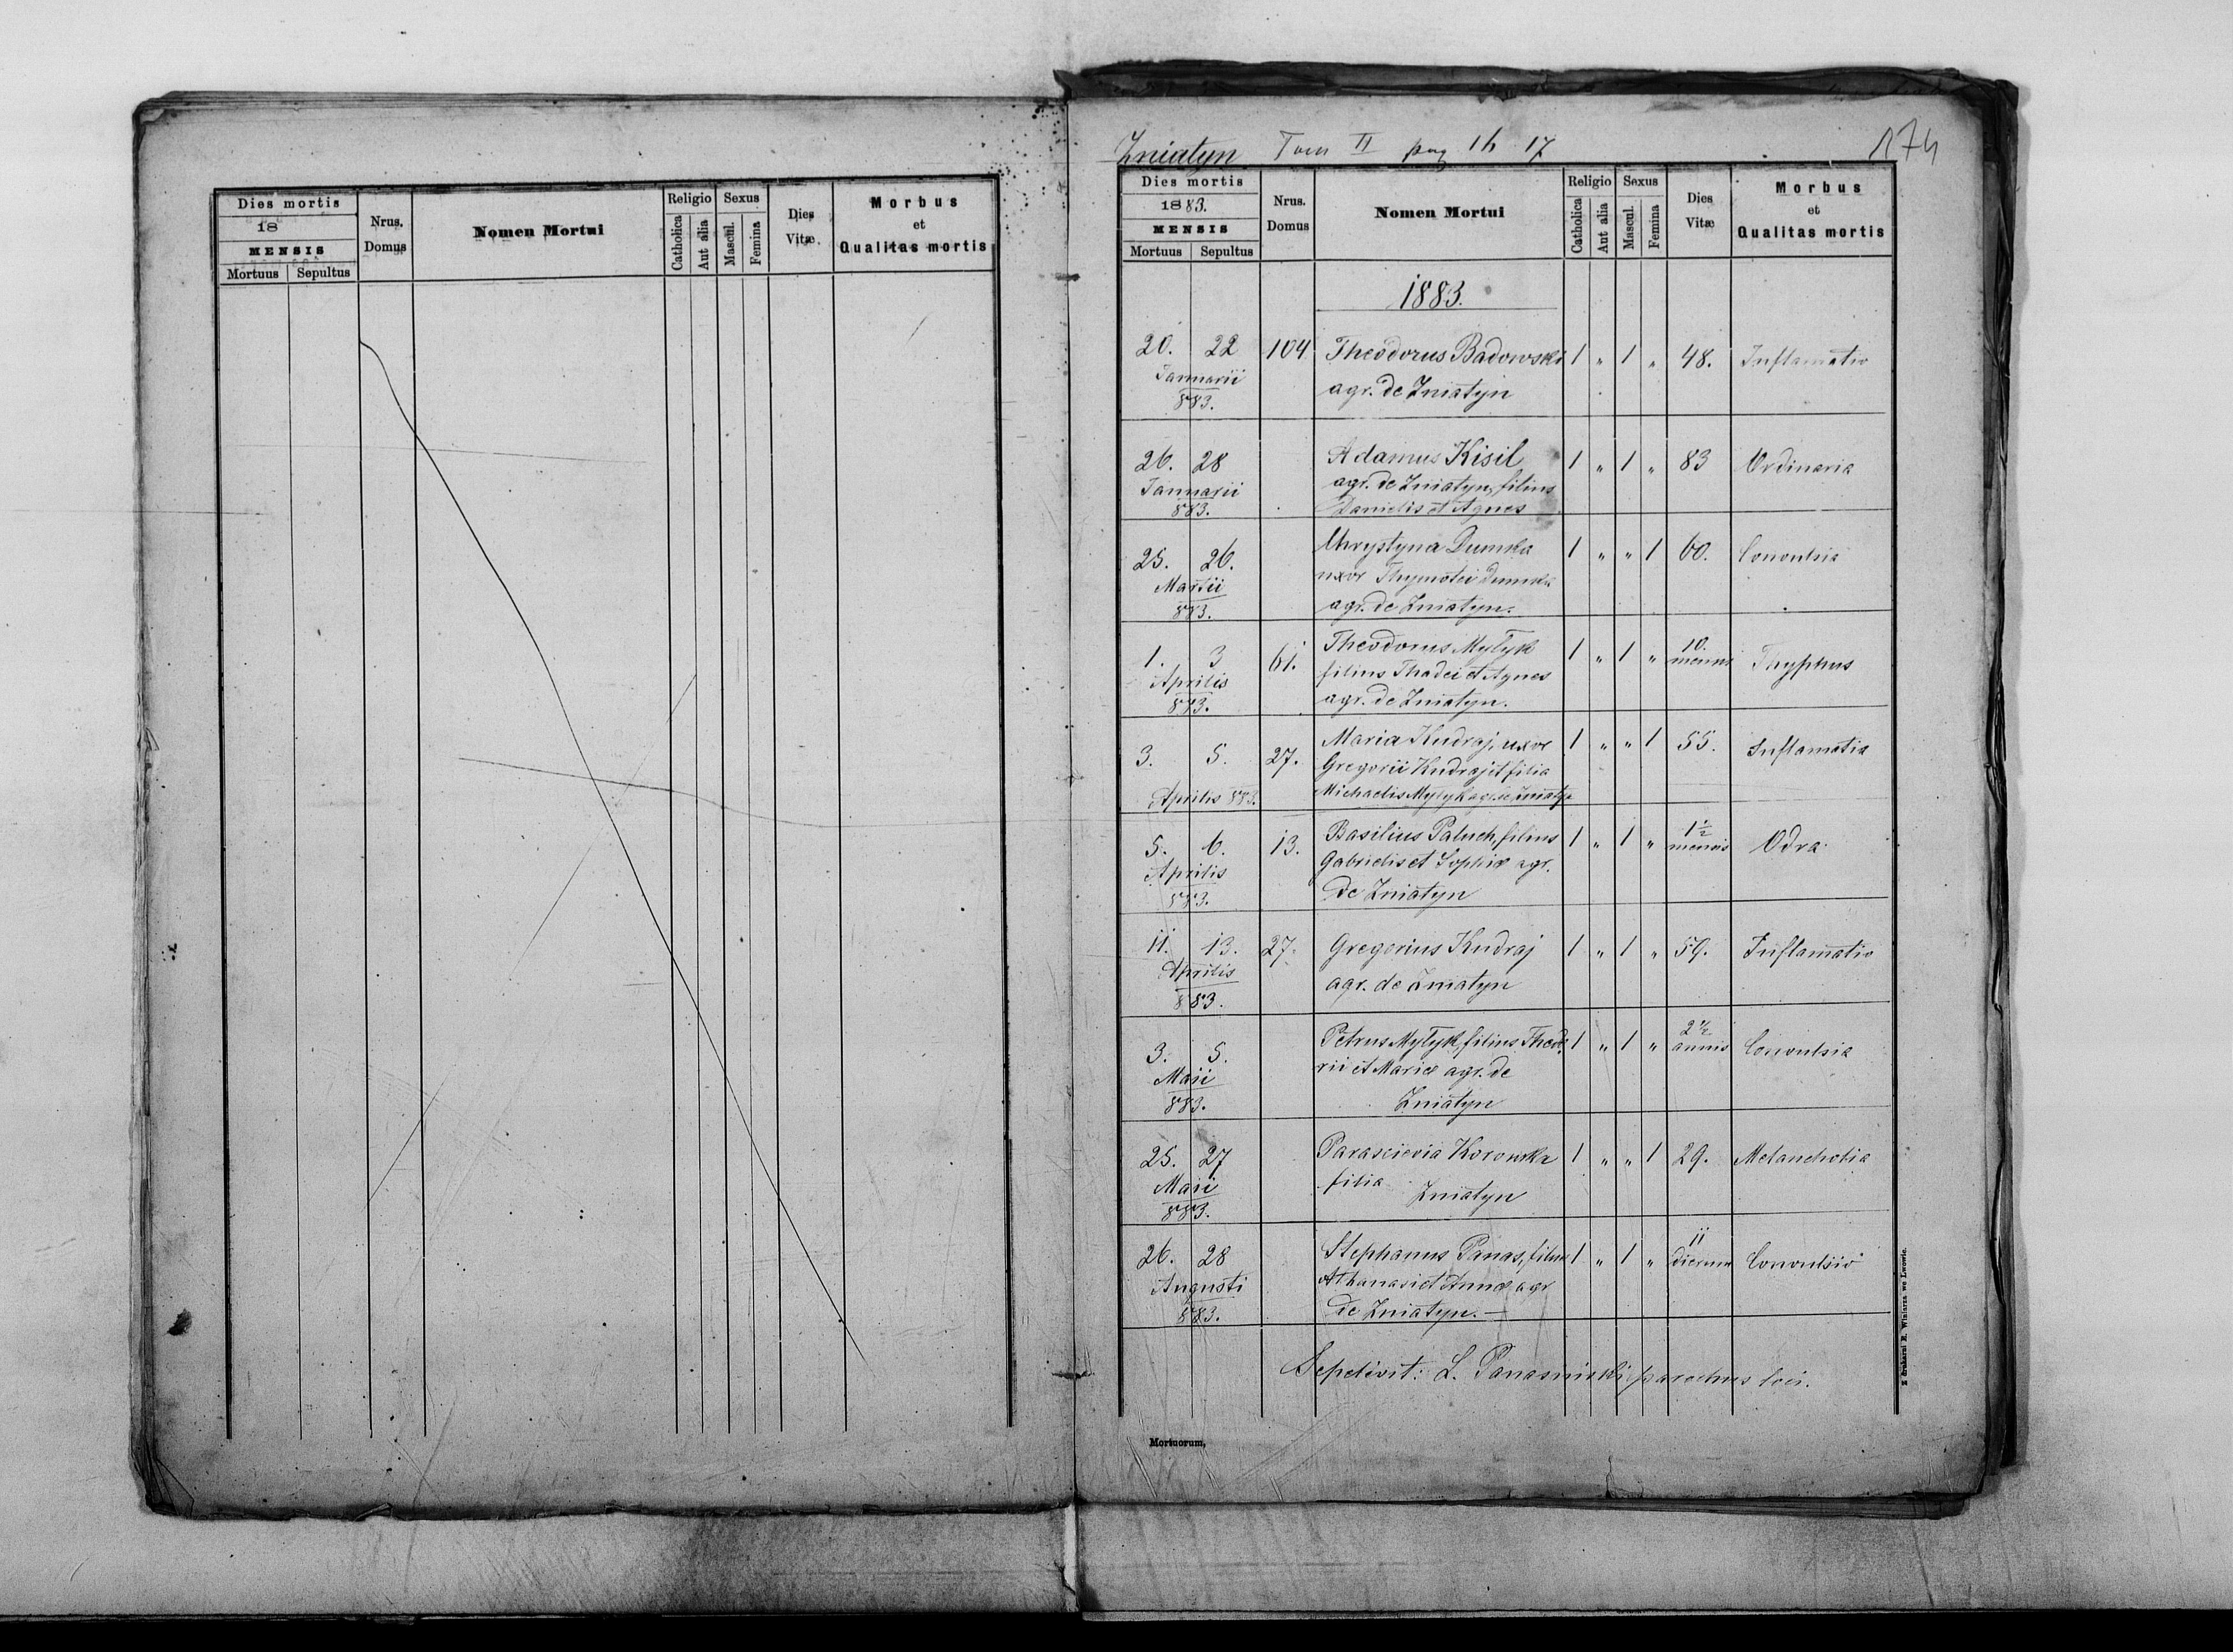 Dies mortis
18
MENSIS
Mortuus Sepultus
Nrus.
Domus
Nomen Mortui
Religio
Catholica
Aut alia
Sexus
Mascul.
Femina
Dies
Vitæ
Morbus
et
Qualitas mortis
Zniatyn Tom II pag 16 17
174
Dies mortis
1883.
MENSIS
Mortuus Sepultus
Nrus.
Domus
Nomen Mortui
Religio
Catholica
Aut alia
Sexus
Mascul.
Femina
Dies
Vitæ
Morbus
et
Qualitas mortis
1883.
20. 22 104 Theodorus Badowski 1 " 1 " 48. Inflamatio
Januarii agr. de Zniatyn
883.
26. 28 Adamus Kisil 1 " 1 " 83 Ordinaria
Januarii agr. de Zniatyn, filius
883. Danielis et Agnes
25. 26. Chrystyna Dumka 1 " " 1 60. Convulsia
Martii uxor Thymotei Dumka
883. agr. de Zniatyn.
1. 3 61. Theodorus Mytyk 1 " 1 " 10. mensis Thyphus
Aprilis filius Thadei et Agnes
883. agr. de Zniatyn.
3. 5. 27. Maria Kudraj, uxor 1 " " 1 55. Inflamatia
Gregorii Kudraj et filia
Aprilis 883. Michaelis Mytyk agr. de Zniatyn
5. 6. 13. Basilius Paluch, filius 1 " 1 " 1 1/2 mensis Odra
Aprilis Gabrielis et Sophiæ agr.
883. de Zniatyn
11. 13. 27. Gregorius Kudraj 1 " 1 " 59. Inflamatio
Aprilis agr. de Zniatyn
883.
3. 5. Petrus Mytyk, filius Theodo 1 " 1 " 2 1/2 annis Convulsia
Maii rii et Mariæ agr. de
883. Zniatyn
25. 27 Parascievia Korowska 1 " " 1 29. Melancholia
Maii filia Zniatyn
883.
26. 28 Stephanus Panas, filius 1 " 1 " 11 dierum Convulsio
Augusti Athanasi et Annæ agr
883. de Zniatyn.—
Sepelivit: L. Panasinski parochus loci.
Mortuorum,
Z drukarni E. Winiarza we Lwowie.